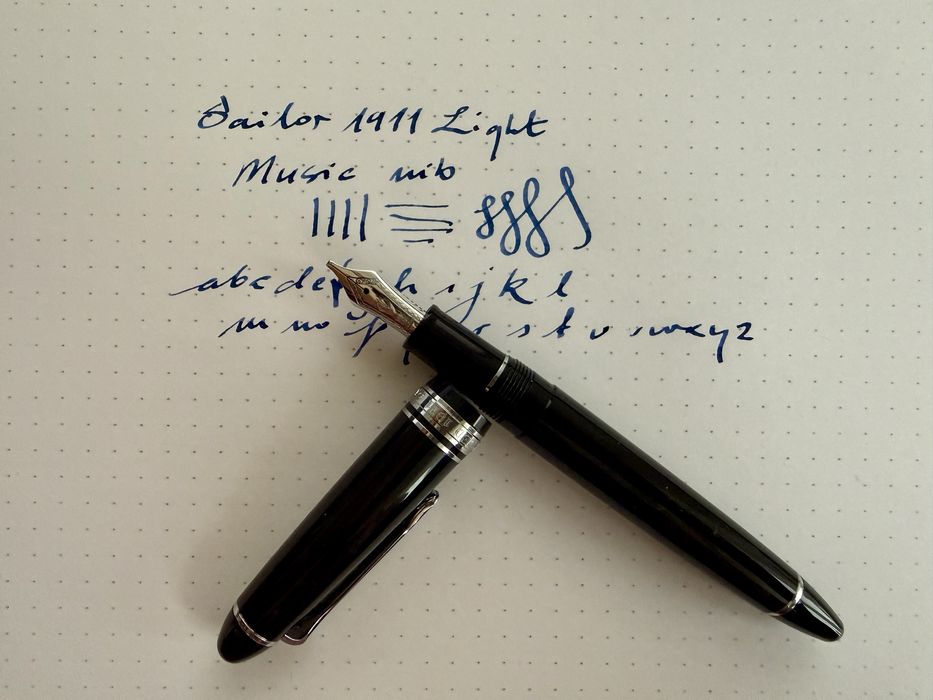 Sailor 1911 Light
Music nib
abcdef h ijkl
m no p r s t u vwxyz